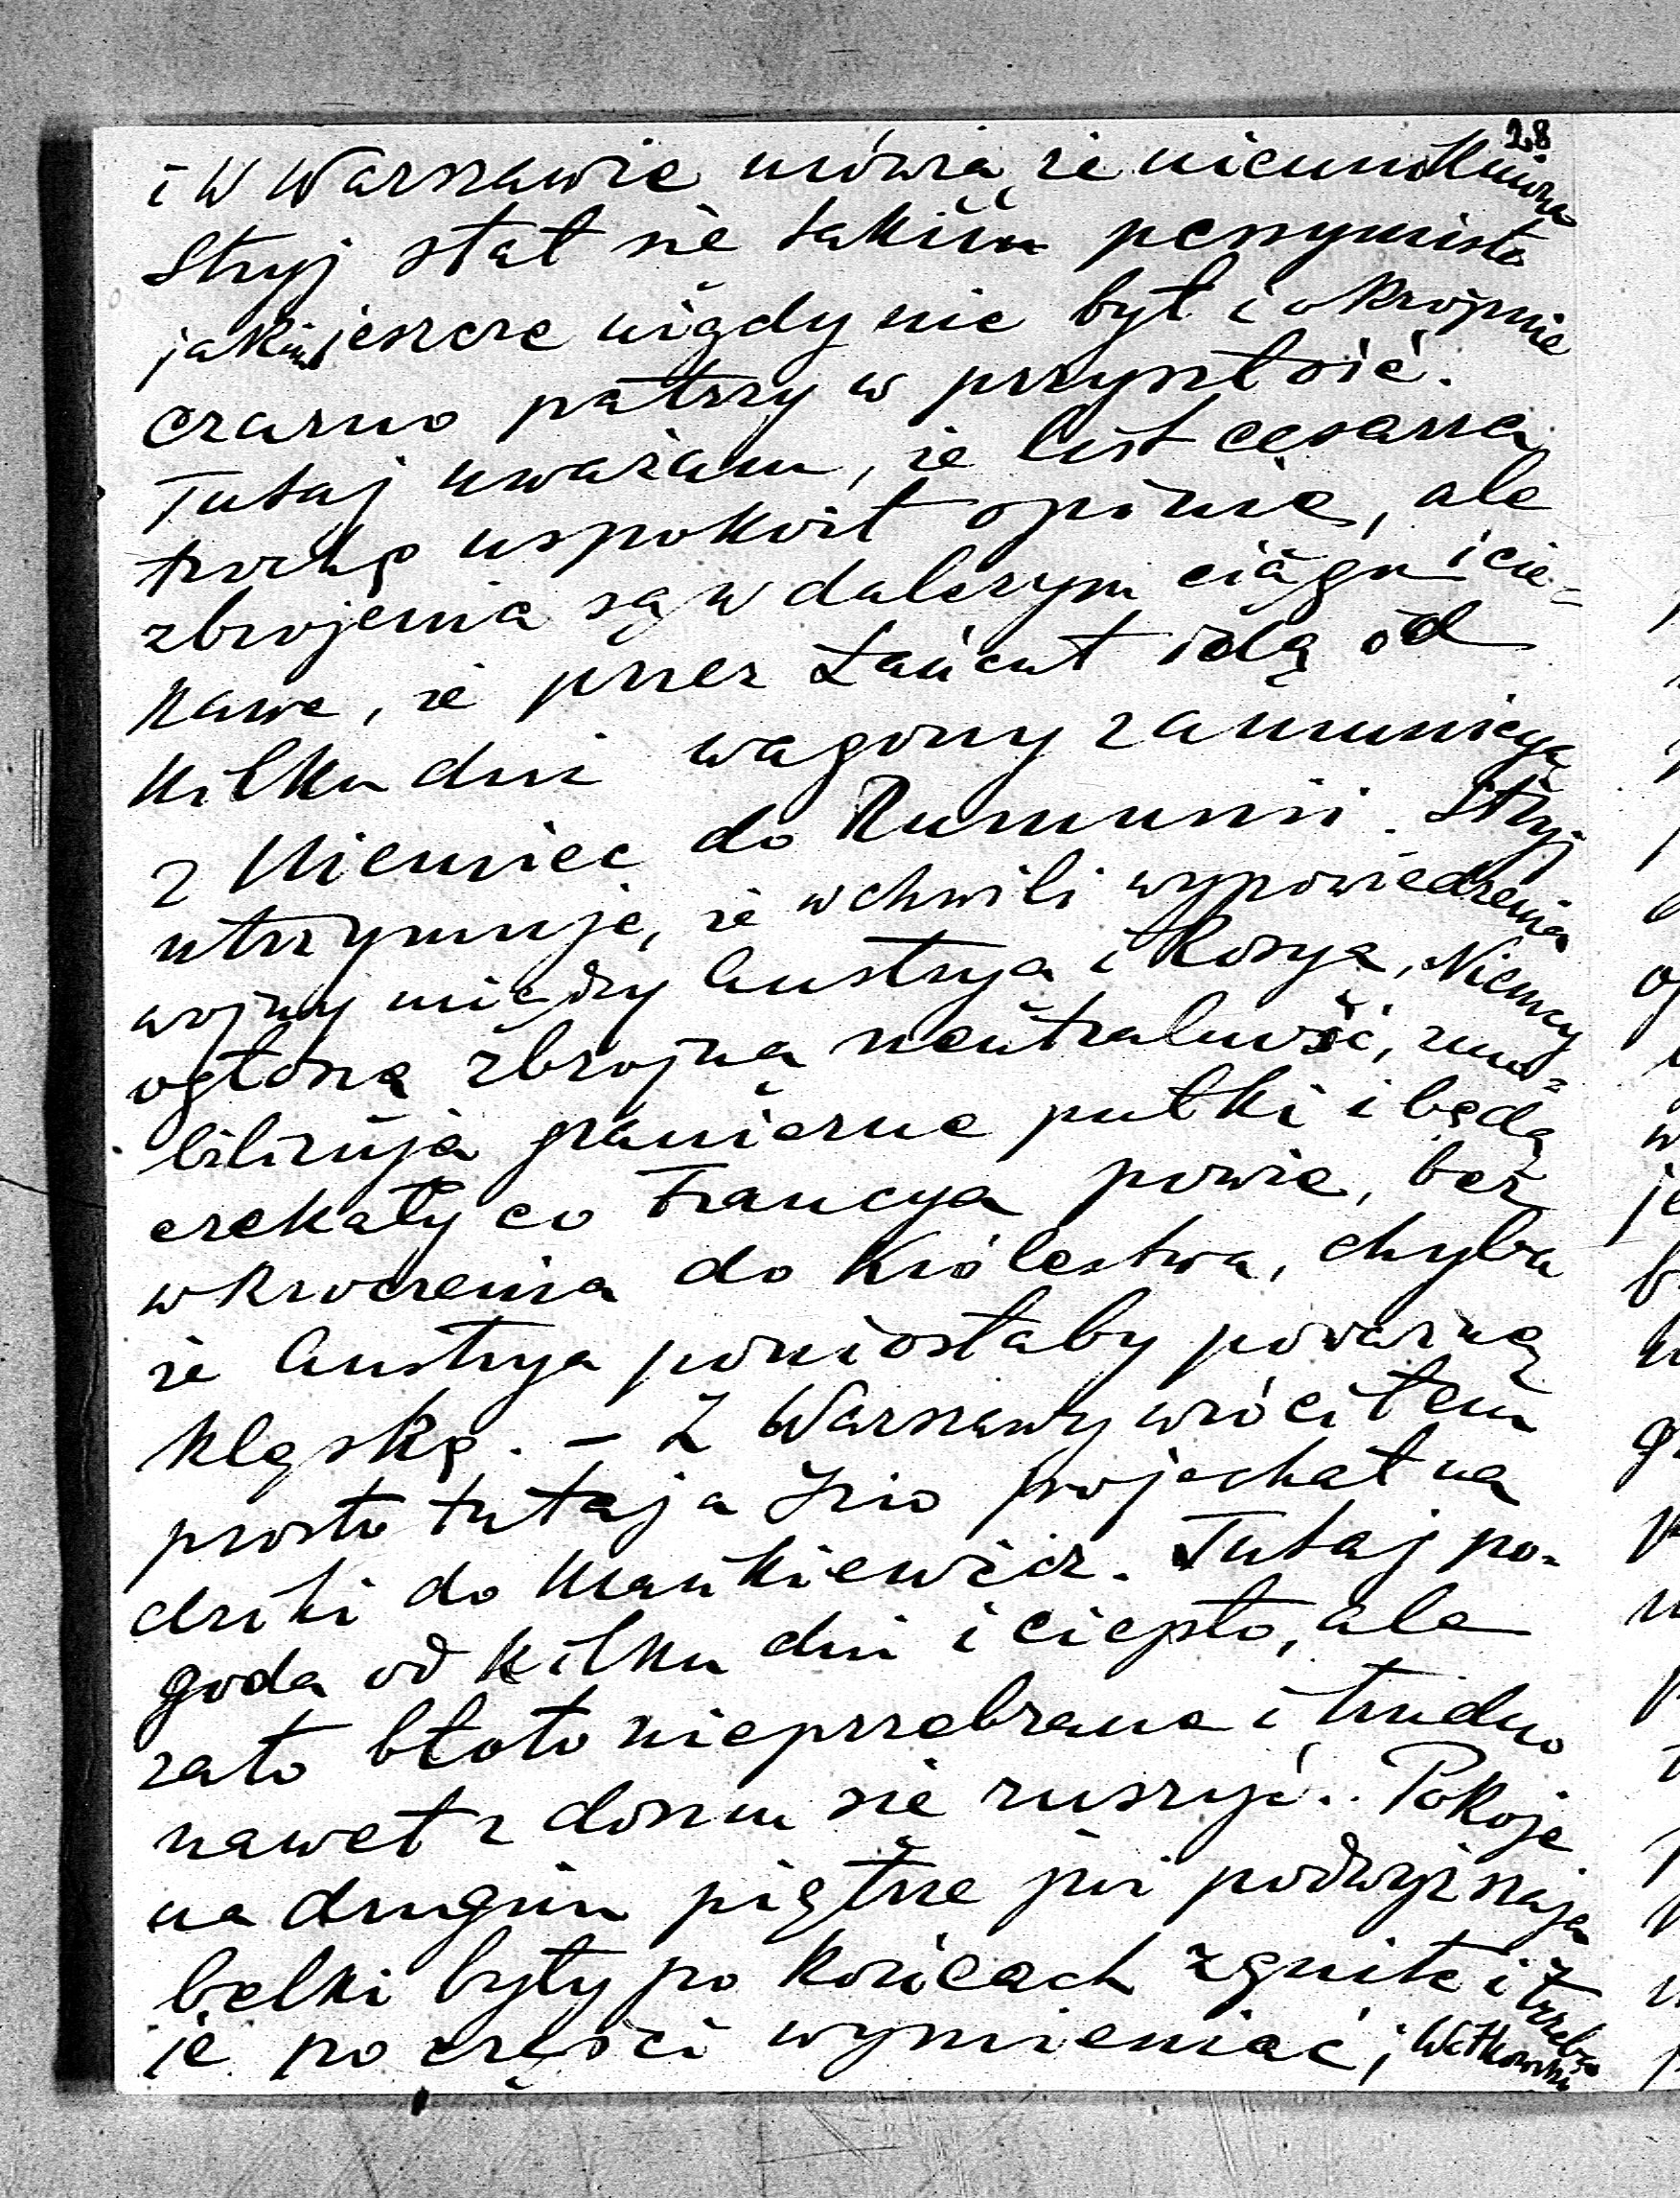 28
i w Warszawie mówią, że nieunikniona
Stryj stał się takim pesymistą
jakim jeszcze nigdy nie był i okropnie
czarno patrzy w przyszłość.
Tutaj uważam, że list cesarza
trochę uspokoił opinię, ale
zbrojenia są w dalszym ciągu i cie=
kawe, że przez Łańcut idą od
kilku dni wagony z amunicyą
z Niemiec do Rumunii. Stryj
utrzymuje, że w chwili wypowiedzenia
wojny między Austryą i Rosyą, Niemcy
ogłoszą zbrojną neutralność, zmo=
bilizują graniczne pułki i będą
czekały co Francya powie, bez
wkroczenia do Królestwa, chyba
że Austrya poniosłaby poważną
klęskę. – Z Warszawy wróciłem
prosto tutaj a Izio pojechał na
dziki do Mańkiewicz. Tutaj po-
goda od kilku dni i ciepło, ale
zato błoto nieprzebrane i trudno
nawet z domu się ruszyć.. Pokoje
na drugim piętrze już podwyższają
belki były po końcach zgniłe i trzeba
je po części wymieniać;